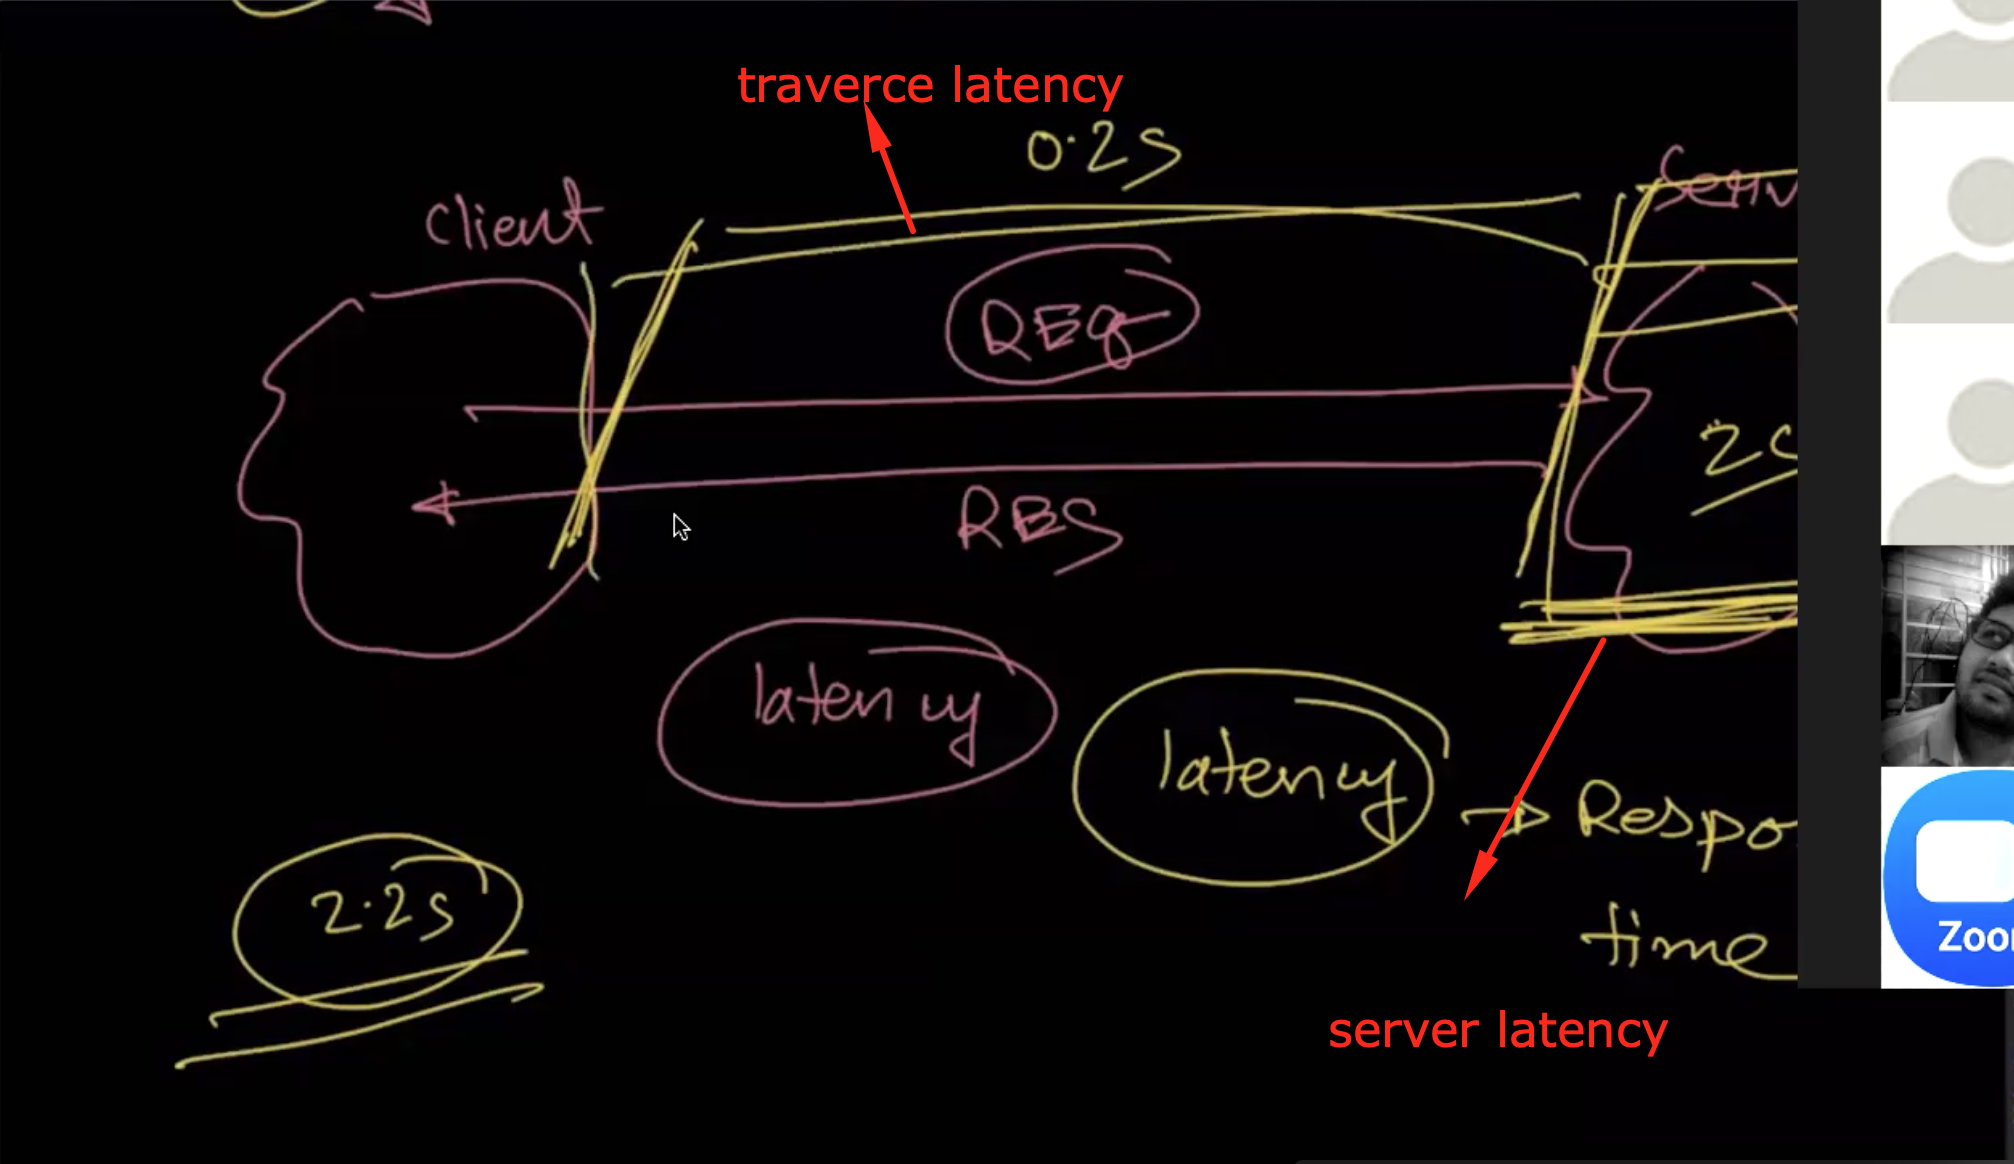 traverce latency
0.2s
client
REq
RES
latency
latency
→ Respo
time
2.2s
server latency
Zoo